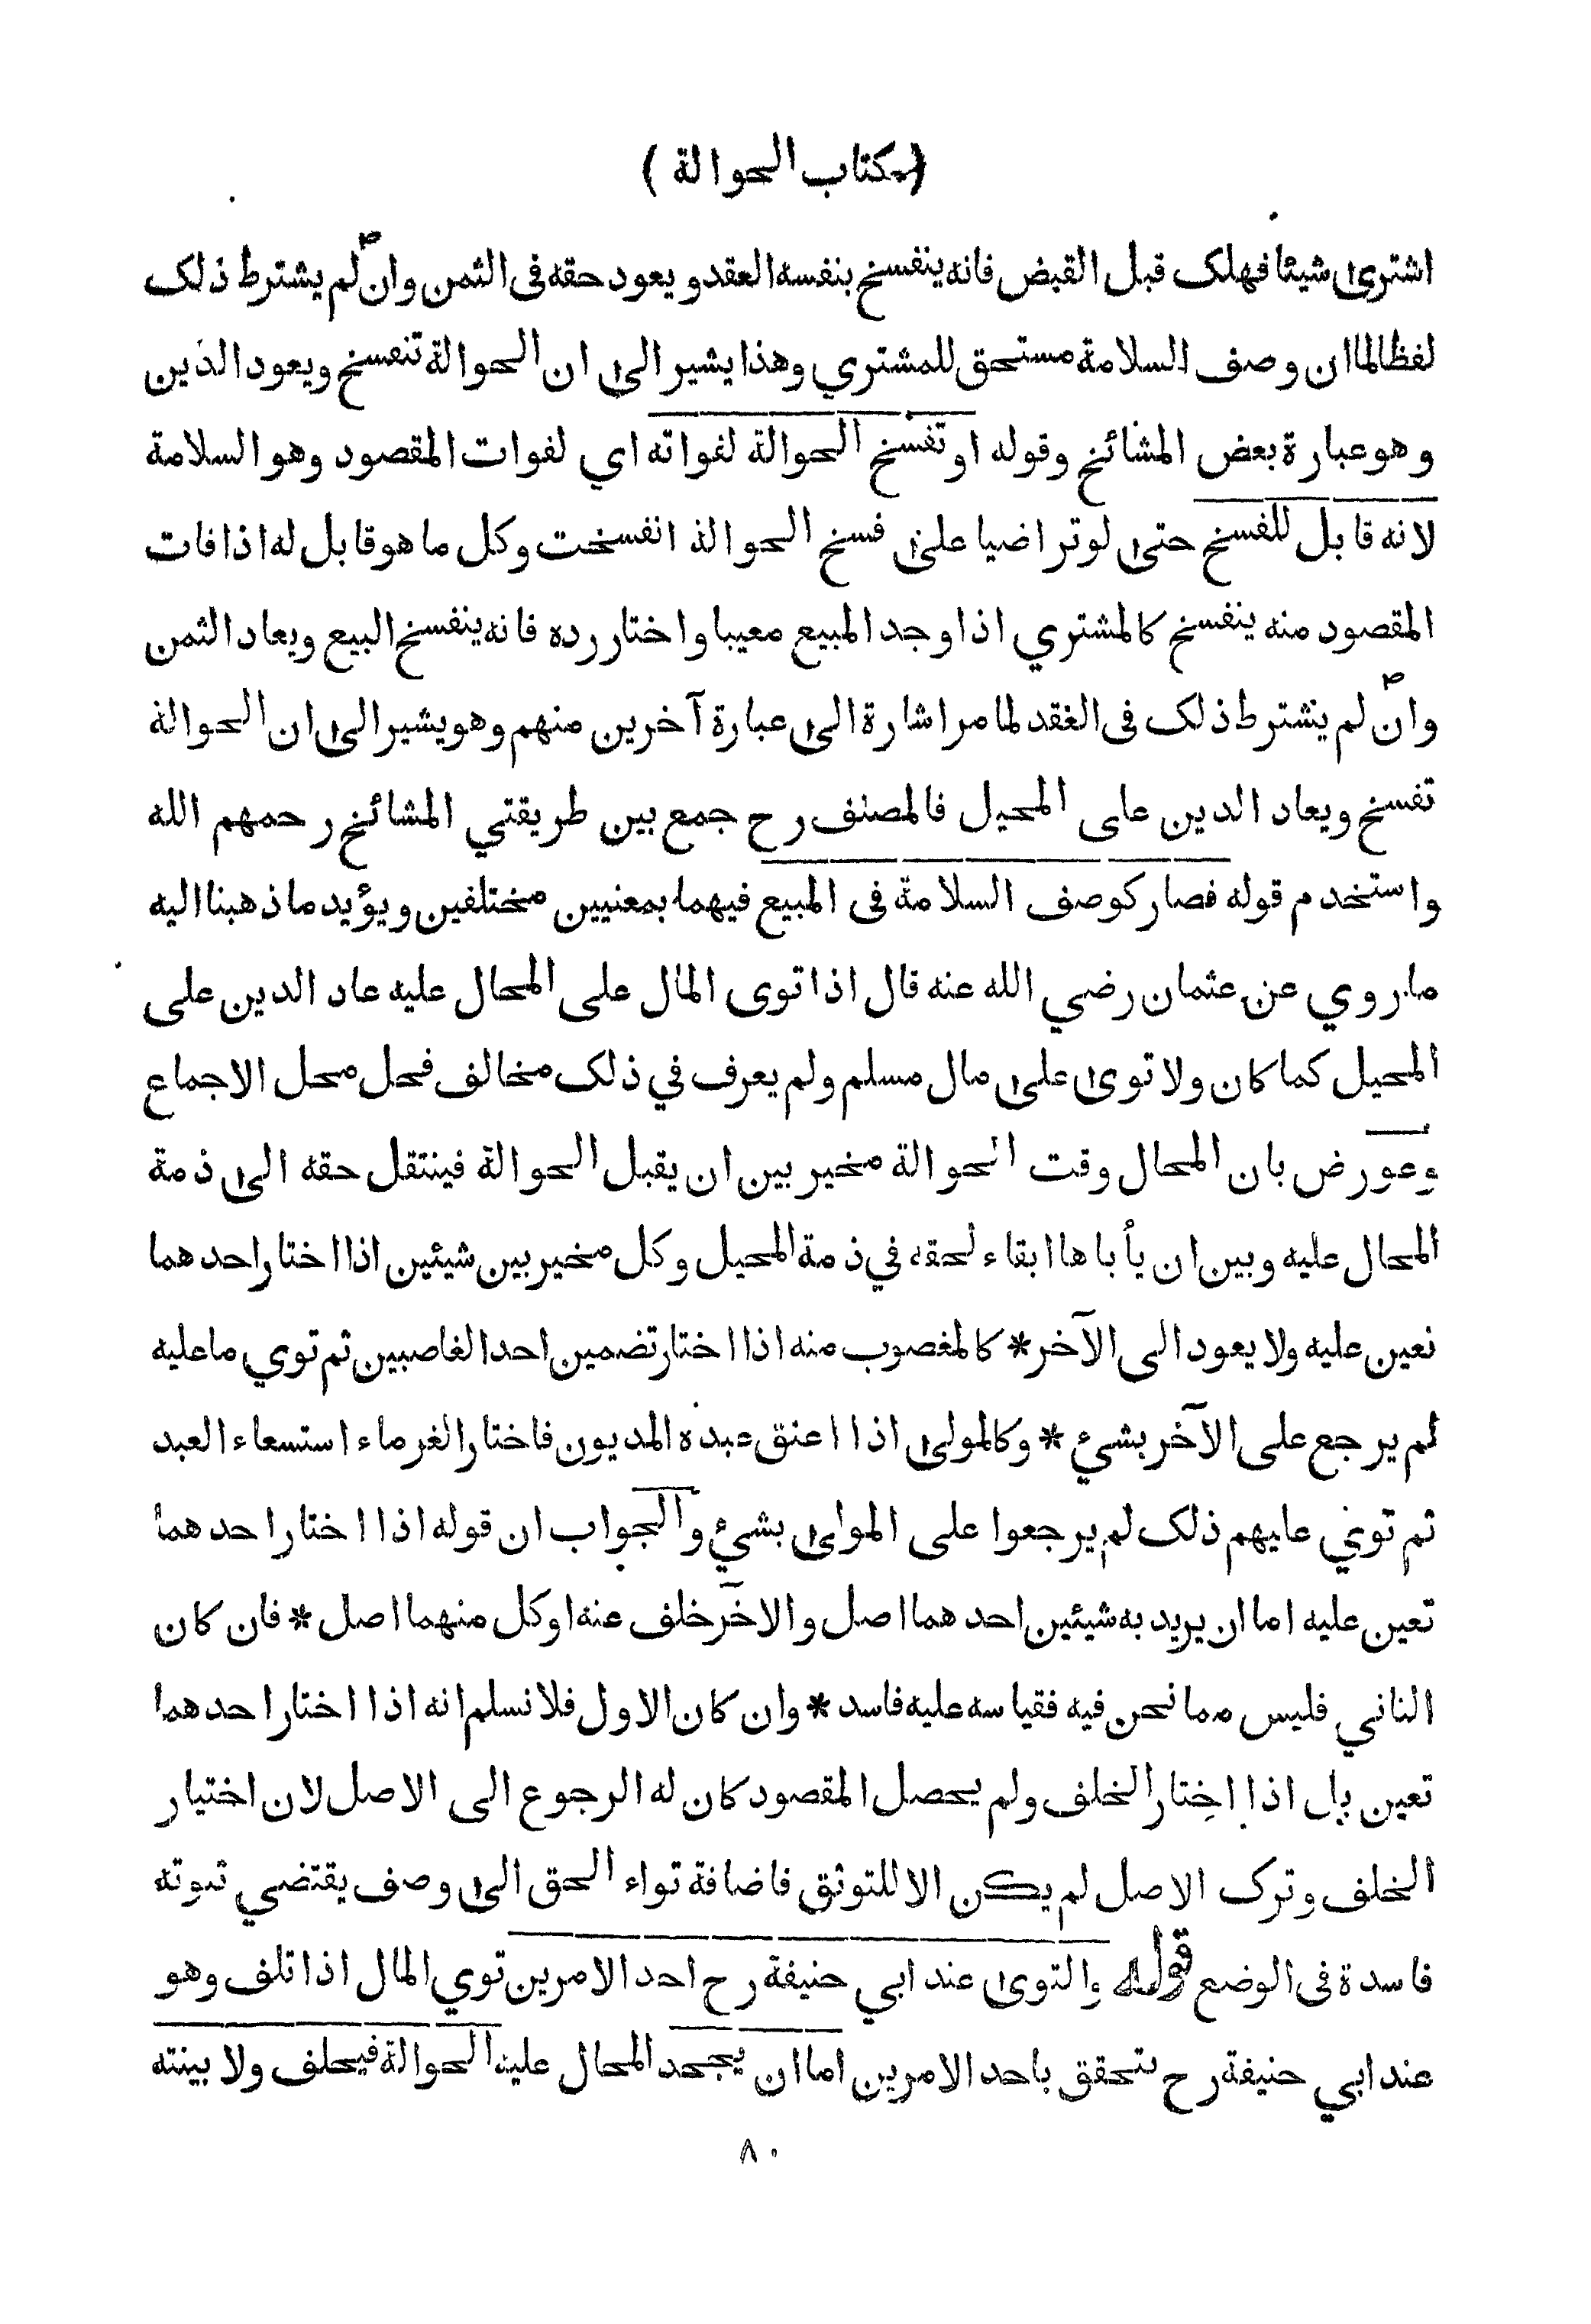 ( كتاب الحوالة )
اشترى شيئا فهلك قبل القبض فانه ينفسخ بنفسه العقد و يعود حقه فى الثمن وان لم يشترط ذلك
لفظا لما ان وصف السلامة مستحق للمشتري وهذا يشير الى ان الحوالة تنفسخ ويعود الدين
وهو عبارة بعض المشائخ وقوله او تفسخ الحوالة لفواته اي لفوات المقصود وهو السلامة
لانه قابل للفسخ حتى لو تراضيا على فسخ الحوالة انفسخت وكل ما هو قابل له اذا فات
المقصود منه ينفسخ كالمشتري اذا وجد المبيع معيبا واختار رده فانه ينفسخ البيع ويعاد الثمن
وان لم يشترط ذلك فى العقد لما مر اشارة الى عبارة آخرين منهم وهو يشير الى ان الحوالة
تفسخ ويعاد الدين على المحيل فالمصنف رح جمع بين طريقتي المشائخ رحمهم الله
واستخدم قوله فصار كوصف السلامة فى المبيع فيهما بمعنيين مختلفين ويؤيد ما ذهبنا اليه
ما روي عن عثمان رضي الله عنه قال اذا توى المال على المحال عليه عاد الدين على
المحيل كما كان ولا توى على مال مسلم ولم يعرف في ذلك مخالف فحل محل الاجماع
وعورض بان المحال وقت الحوالة مخير بين ان يقبل الحوالة فينتقل حقه الى ذمة
المحال عليه وبين ان يأباها ابقاء لحقه في ذمة المحيل وكل مخير بين شيئين اذا اختار احدهما
تعين عليه ولا يعود الى الآخر * كالمغصوب منه اذا اختار تضمين احد الغاصبين ثم توي ما عليه
لم يرجع على الآخر بشيء * وكالمولى اذا اعتق عبده المديون فاختار الغرماء استسعاء العبد
ثم توي عليهم ذلك لم يرجعوا على المولى بشيء والجواب ان قوله اذا اختار احدهما
تعين عليه اما ان يريد به شيئين احدهما اصل والاخر خلف عنه او كل منهما اصل * فان كان
الثاني فليس مما نحن فيه فقياسه عليه فاسد * وان كان الاول فلا نسلم انه اذا اختار احدهما
تعين بل اذا اختار الخلف ولم يحصل المقصود كان له الرجوع الى الاصل لان اختيار
الخلف وترك الاصل لم يكن الا للتوثق فاضافة تواء الحق الى وصف يقتضي ثبوته
فاسدة فى الوضع قوله والتوى عند ابي حنيفة رح احد الامرين توي المال اذا تلف وهو
عند ابي حنيفة رح يتحقق باحد الامرين اما ان يجحد المحال عليه الحوالة فيحلف ولا بينته
٨٠